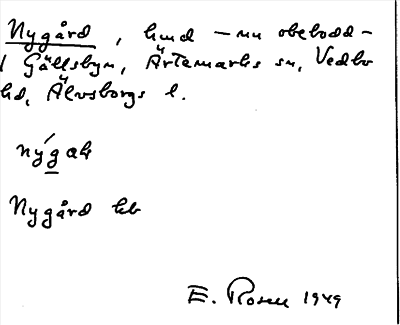 Nygård, hmd – nu obebodd –
i Gällsbyn, Ärtemarks sn, Vedbo
hd, Älvsborgs l.
Nygård kb
E. Rosell 1949